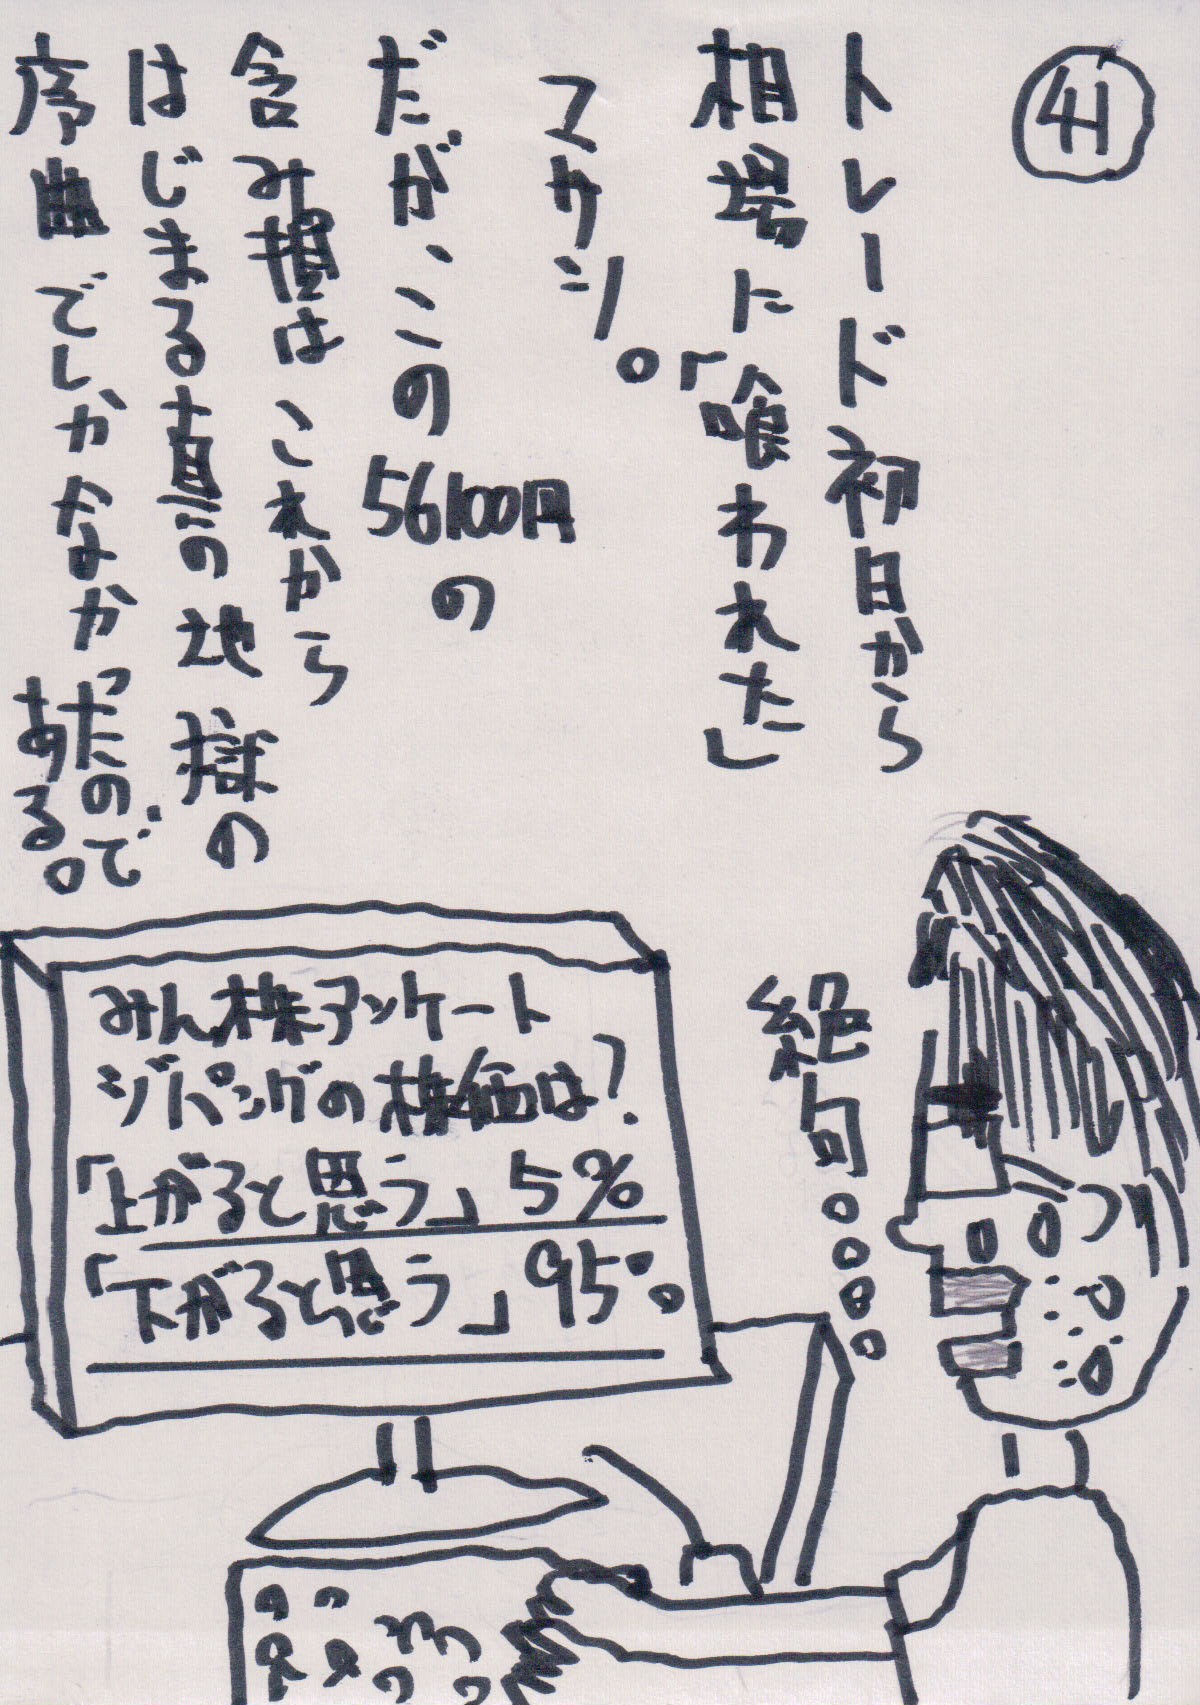 41
トレード初日から
相場に「喰われた」
マサシ。
だがこの56100円の
含み損はこれから
はじまる真の地獄の
序曲でしかなかったので
ある。
絶句。。。。
みん株アンケート
ジパングの株価は?
「上がると思う」5%
「下がると思う」95%